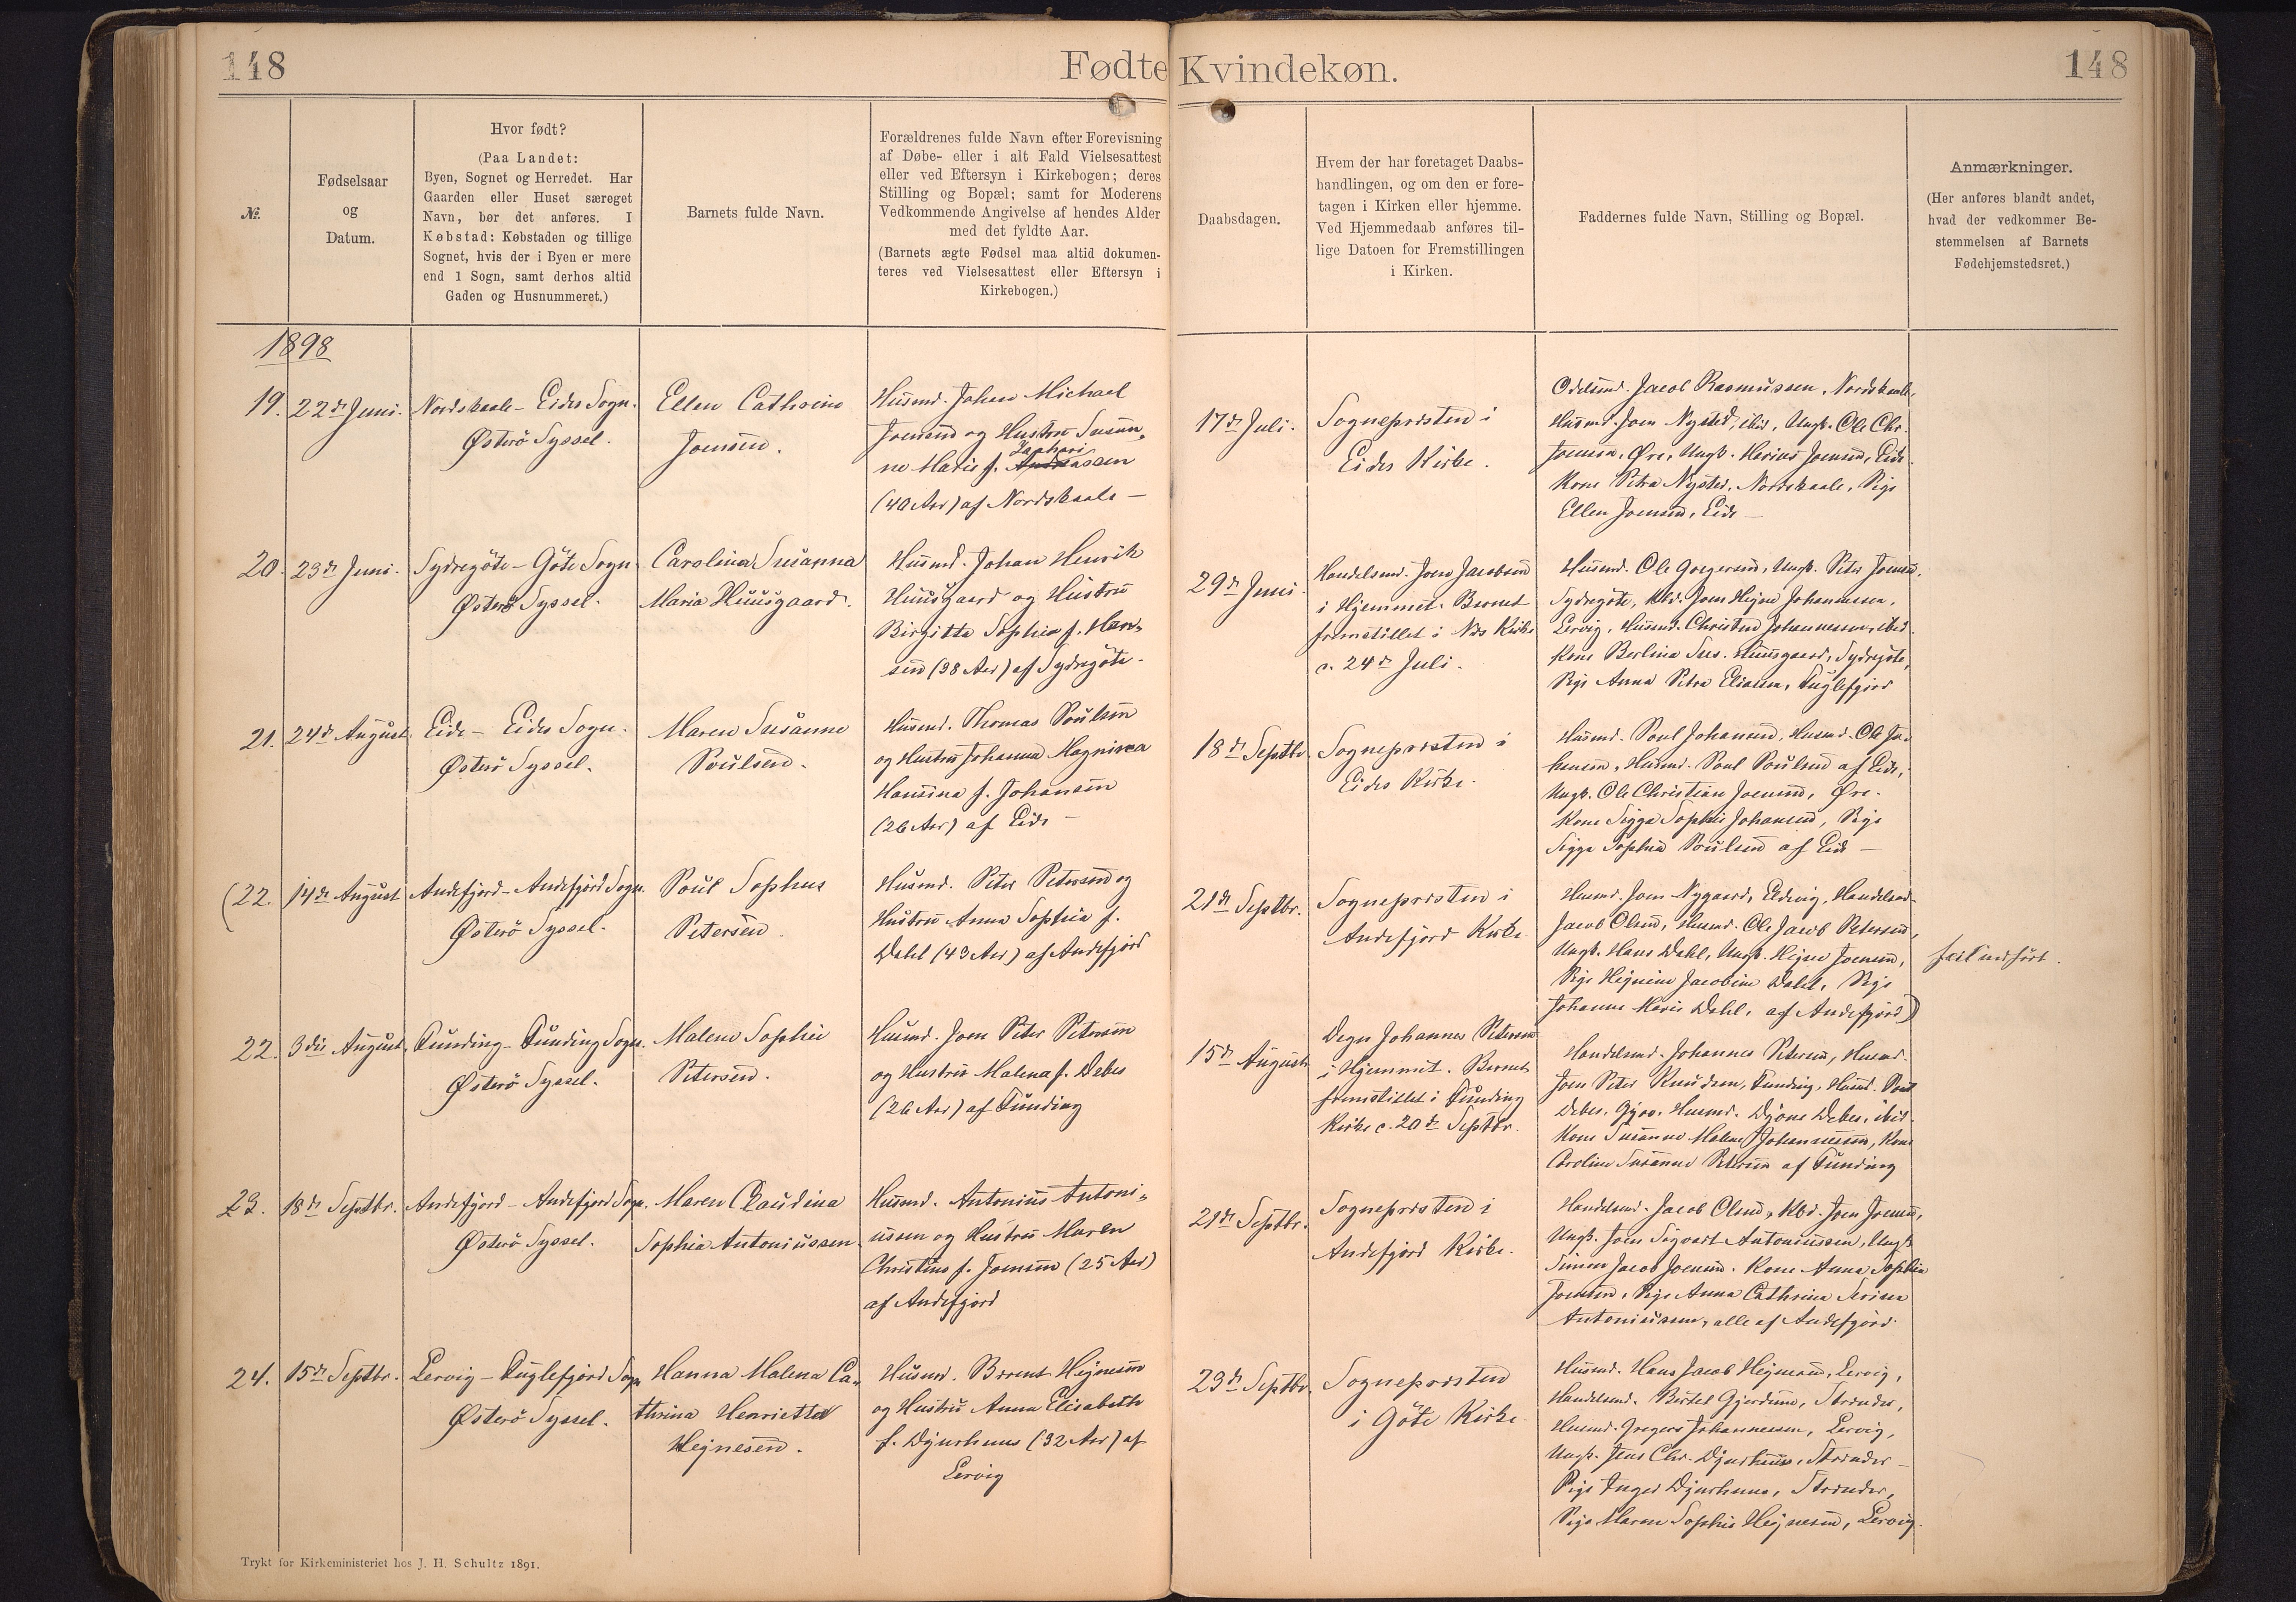 148
Fødte Kvindekøn.
148
№.
Fødselsaar
og
Datum.
Hvor født?
(Paa Landet:
Byen, Sognet og Herredet. Har
Gaarden eller Huset særeget
Navn, bør det anføres. I
Købstad: Købstaden og tillige
Sognet, hvis der i Byen er mere
end 1 Sogn, samt derhos altid
Gaden og Husnummeret.)
Barnets fulde Navn.
Forældrenes fulde Navn efter Forevisning
af Døbe- eller i alt Fald Vielsesattest
eller ved Eftersyn i Kirkebogen; deres
Stilling og Bopæl; samt for Moderens
Vedkommende Angivelse af hendes Alder
med det fyldte Aar.
(Barnets ægte Fødsel maa altid dokumen-
teres ved Vielsesattest eller Eftersyn i
Kirkebogen.)
Daabsdagen.
Hvem der har foretaget Daabs-
handlingen, og om den er fore-
tagen i Kirken eller hjemme.
Ved Hjemmedaab anføres til-
lige Datoen for Fremstillingen
i Kirken.
Faddernes fulde Navn, Stilling og Bopæl.
Anmærkninger.
(Her anføres blandt andet,
hvad der vedkommer Be-
stemmelsen af Barnets
Fødehjemstedsret.)
1898
19.
22de Juni.
Nordskaale - Eides Sogn.
Østerø Syssel.
Ellen Cathrine
Joensen.
Husmd. Johan Michael
Joensen og Hustru Susan-
ne Marie f.
(40 Aar) af Nordskaale -
17de Juli.
Sognepræsten i
Eides Kirke.
Odelsmd. Jacob Rasmussen, Nordskaale,
Husmd. Joen Nysted, ibid, Ungk. Ole Chr.
Joensen, Øre, Ungk. Joensen, Eide
Kone Petra Nysted, Nordskaale, Pige
Ellen Joensen, Eide -
20.
23de Juni.
Sydregøte - Gøte Sogn
Østerø Syssel.
Carolina Susanna
Maria Huusgaard.
Husmd. Johan Henrik
Huusgaard og Hustru
Birgitta Sophia f. Han-
sen (38 Aar) af Sydregøte -
29de Juni.
Handelsmd. Joen Jacobsen
i Hjemmet. Barnet
fremstillet i Næs Kirke
d. 24de Juli.
Husmd. Ole Gregersen, Ungk. Peter Joensen,
Sydregøte, Kbd. Joen Hejne Johannessen,
Lervig, Husmd. Christen Johannessen, ibid.
Kone Berlina Sus. Huusgaard, Sydregøte,
Pige Anna Petra Eliasen, Fuglefjord
21.
24de August
Eide - Eides Sogn.
Østerø Syssel.
Maren Susanne
Poulsen.
Husmd. Thomas Poulsen
og Hustru Johanna
Hansina f. Johansen
(26 Aar) af Eide -
18de Septbr.
Sognepræsten i
Eides Kirke.
Husmd. Poul Johansen, Husmd. Ole Jo-
hansen, Husmd. Poul Poulsen af Eide,
Ungk. Ole Christian Joensen, Øre.
Kone Sigga Sophie Johansen, Pige
Sigga Sophia Poulsen af Eide -
(22.
14de August
Andefjord - Andefjord Sogn.
Østerø Syssel.
Poul Sophus
Petersen.
Husmd. Peter Petersen og
Hustru Anna Sophia f.
Dahl (43 Aar) af Andefjord
21de Septbr.
Sognepræsten i
Andefjord Kirke
Husmd. Joen Nygaard, Eldevig, Handelsmd.
Jacob Olsen, Husmd. Ole Jacob Petersen,
Ungk. Hans Dahl, Ungk. Hejne Joensen,
Pige Jacobine Dahl, Pige
Johanne Marie Dahl, af Andefjord)
feil indført.
22.
3die August.
Funding - Funding Sogn.
Østerø Syssel.
Malene Sophie
Petersen.
Husmd. Joen Peter Petersen
og Hustru Malena f. Debes
(26 Aar) af Funding
15de August
Degn Johannes Petersen
i Hjemmet. Barnet
fremstillet i Funding
Kirke d. 20de Septbr.
Handelsmd. Johannes Petersen, Husmd.
Joen Peter Knudsen, Funding, Husmd. Poul
Debes, Gjov, Husmd. Djone Debes, ibid.
Kone Susanne Malene Johannessen, Kone
Caroline Susanne Petersen af Funding
23.
18de Septbr.
Andefjord - Andefjord Sogn.
Østerø Syssel.
Maren Claudina
Sophia Antoniussen.
Husmd. Antonius Antoni-
ussen og Hustru Maren
Christine f. Joensen (25 Aar)
af Andefjord
21de Septbr.
Sognepræsten i
Andefjord Kirke.
Handelsmd. Jacob Olsen, Kbd. Joen Joensen,
Ungk. Joen Sigvart Antoniussen, Ungk.
Simon Jacob Joensen. Kone Anna Sophia
Joensen, Pige Anna Cathrina
Antoniussen, alle af Andefjord.
24.
15de Septbr.
Lervig - Fuglefjord Sogn
Østerø Syssel.
Hanna Malena Ca-
thrina Henrietta
Hejnesen.
Husmd. Berent Hejnesen
og Hustru Anna Elisabeth
f. Djurhuus (32 Aar) af
Lervig
23de Septbr.
Sognepræsten
i Gøte Kirke.
Husmd. Hans Jacob Hejnesen, Lervig,
Handelsmd. Gjerdum, Strender,
Husmd. Gregers Johannessen, Lervig,
Ungk. Jens Chr. Djurhuus, Strender -
Pige Inger Djurhuus, Strender,
Pige Maren Sophie Hejnesen, Lervig.
Trykt for Kirkeministeriet hos J. H. Schultz 1891.